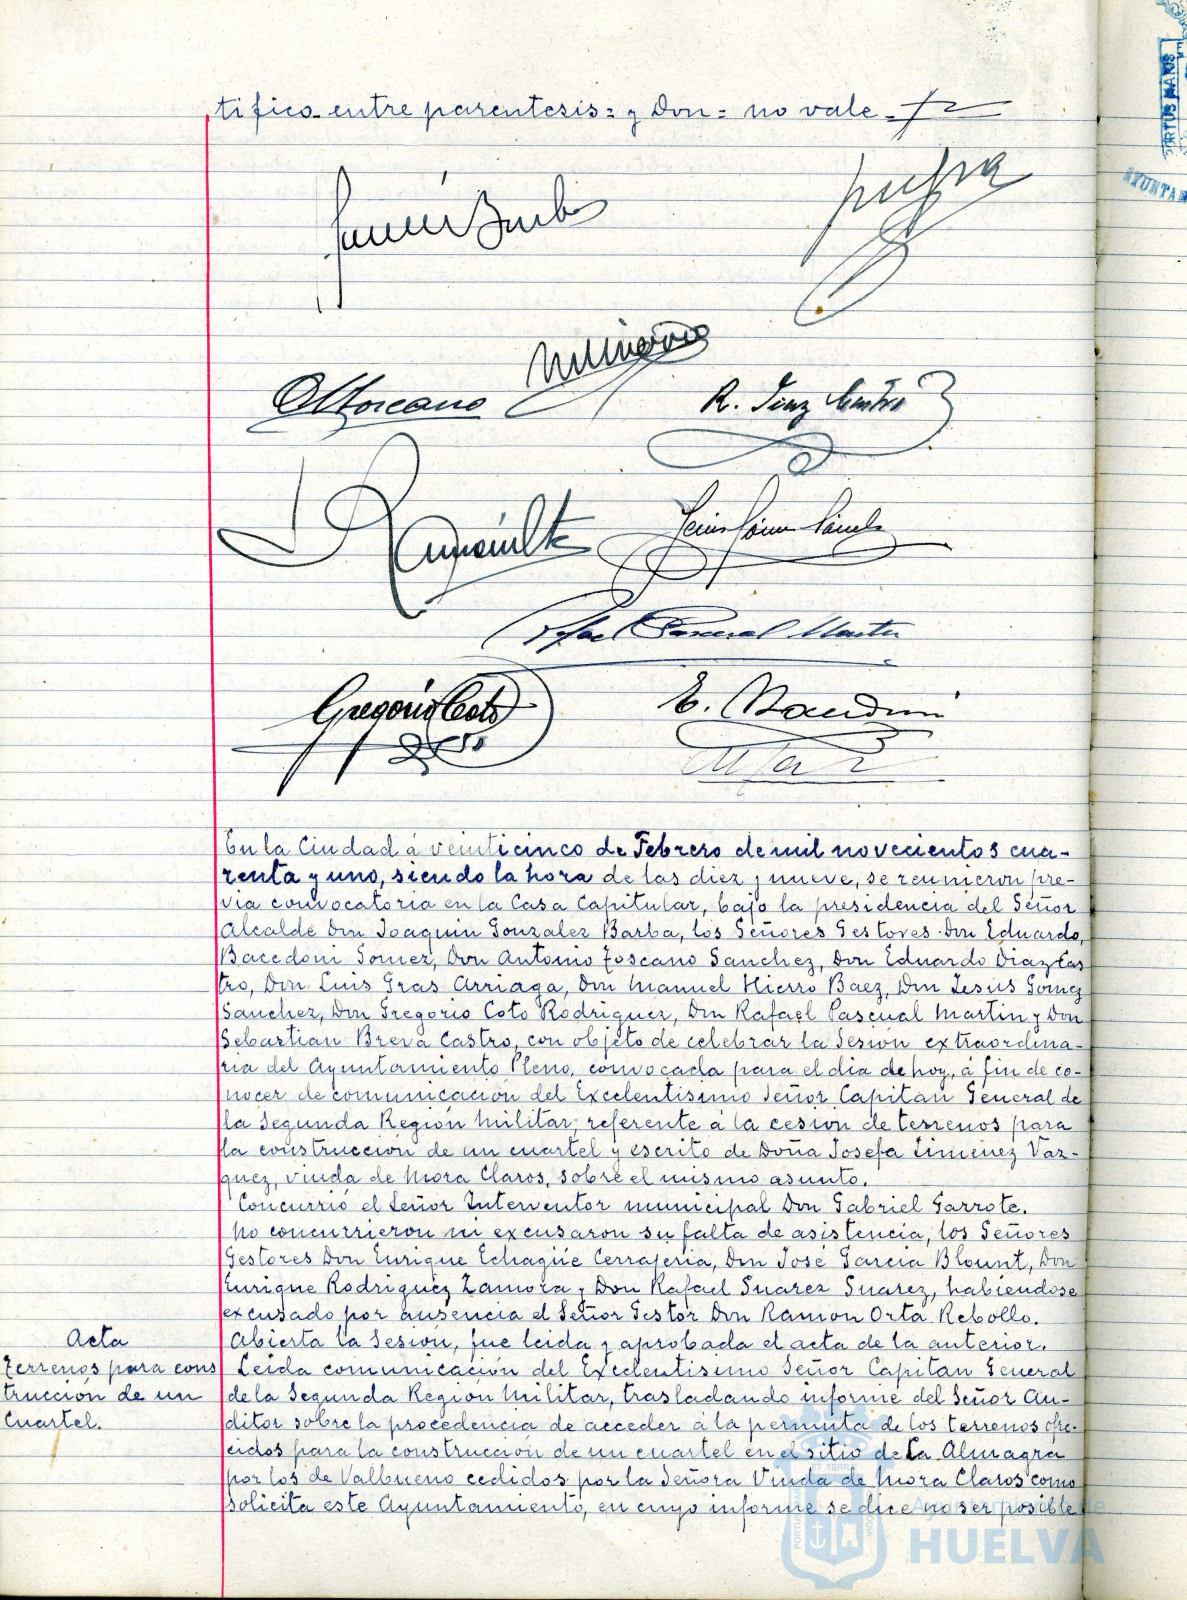 tifico entre parentesis = y Don = no vale
R. Diaz Castro
Rafael Pascual Martin
Gregorio Coto
En la Ciudad á veinticinco de Febrero de mil novecientos cua-
renta y uno, siendo la hora de las diez y nueve, se reunieron pre-
via convocatoria en la Casa Capitular, bajo la presidencia del Señor
Alcalde Don Joaquin Gonzalez Barba, los Señores Gestores Don Eduardo
Bacedoni Gomez, Don Antonio Toscano Sanchez, Don Eduardo Diaz Cas
tro, Don Luis Gras Arriaga, Don Manuel Hierro Baez, Don Jesus Gomez
Sanchez, Don Gregorio Coto Rodriguez, Don Rafael Pascual Martin y Don
Sebastian Breva Castro, con objeto de celebrar la Sesión extraordina-
ria del Ayuntamiento Pleno, convocada para el dia de hoy, á fin de co-
nocer de comunicación del Excelentisimo Señor Capitan General de
la Segunda Región Militar, referente á la cesión de terrenos para
la construcción de un cuartel y escrito de Doña Josefa Jimenez Vaz-
quez, viuda de Mora Claros, sobre el mismo asunto.
Concurrió el Señor Interventor municipal Don Gabriel Garrote.
No concurrieron ni excusaron su falta de asistencia, los Señores
Gestores Don Enrique Echagüe Cerrajeria, Don José Garcia Blount, Don
Enrique Rodriguez Zamora y Don Rafael Suarez Suarez, habiendose
excusado por ausencia el Señor Gestor Don Ramon Orta Rebollo.
Abierta la Sesión, fue leida y aprobada el acta de la anterior.
Acta
Terrenos para cons
trucción de un
Cuartel.
Leida comunicación del Excelentisimo Señor Capitan General
de la Segunda Región Militar, trasladando informe del Señor Au-
ditor sobre la procedencia de acceder á la permuta de los terrenos ofre-
cidos para la construcción de un cuartel en el sitio de La Almagra
por los de Valbueno cedidos por la Señora Viuda de Mora Claros como
solicita este Ayuntamiento, en cuyo informe se dice no ser posible
Ayuntamiento de
HUELVA